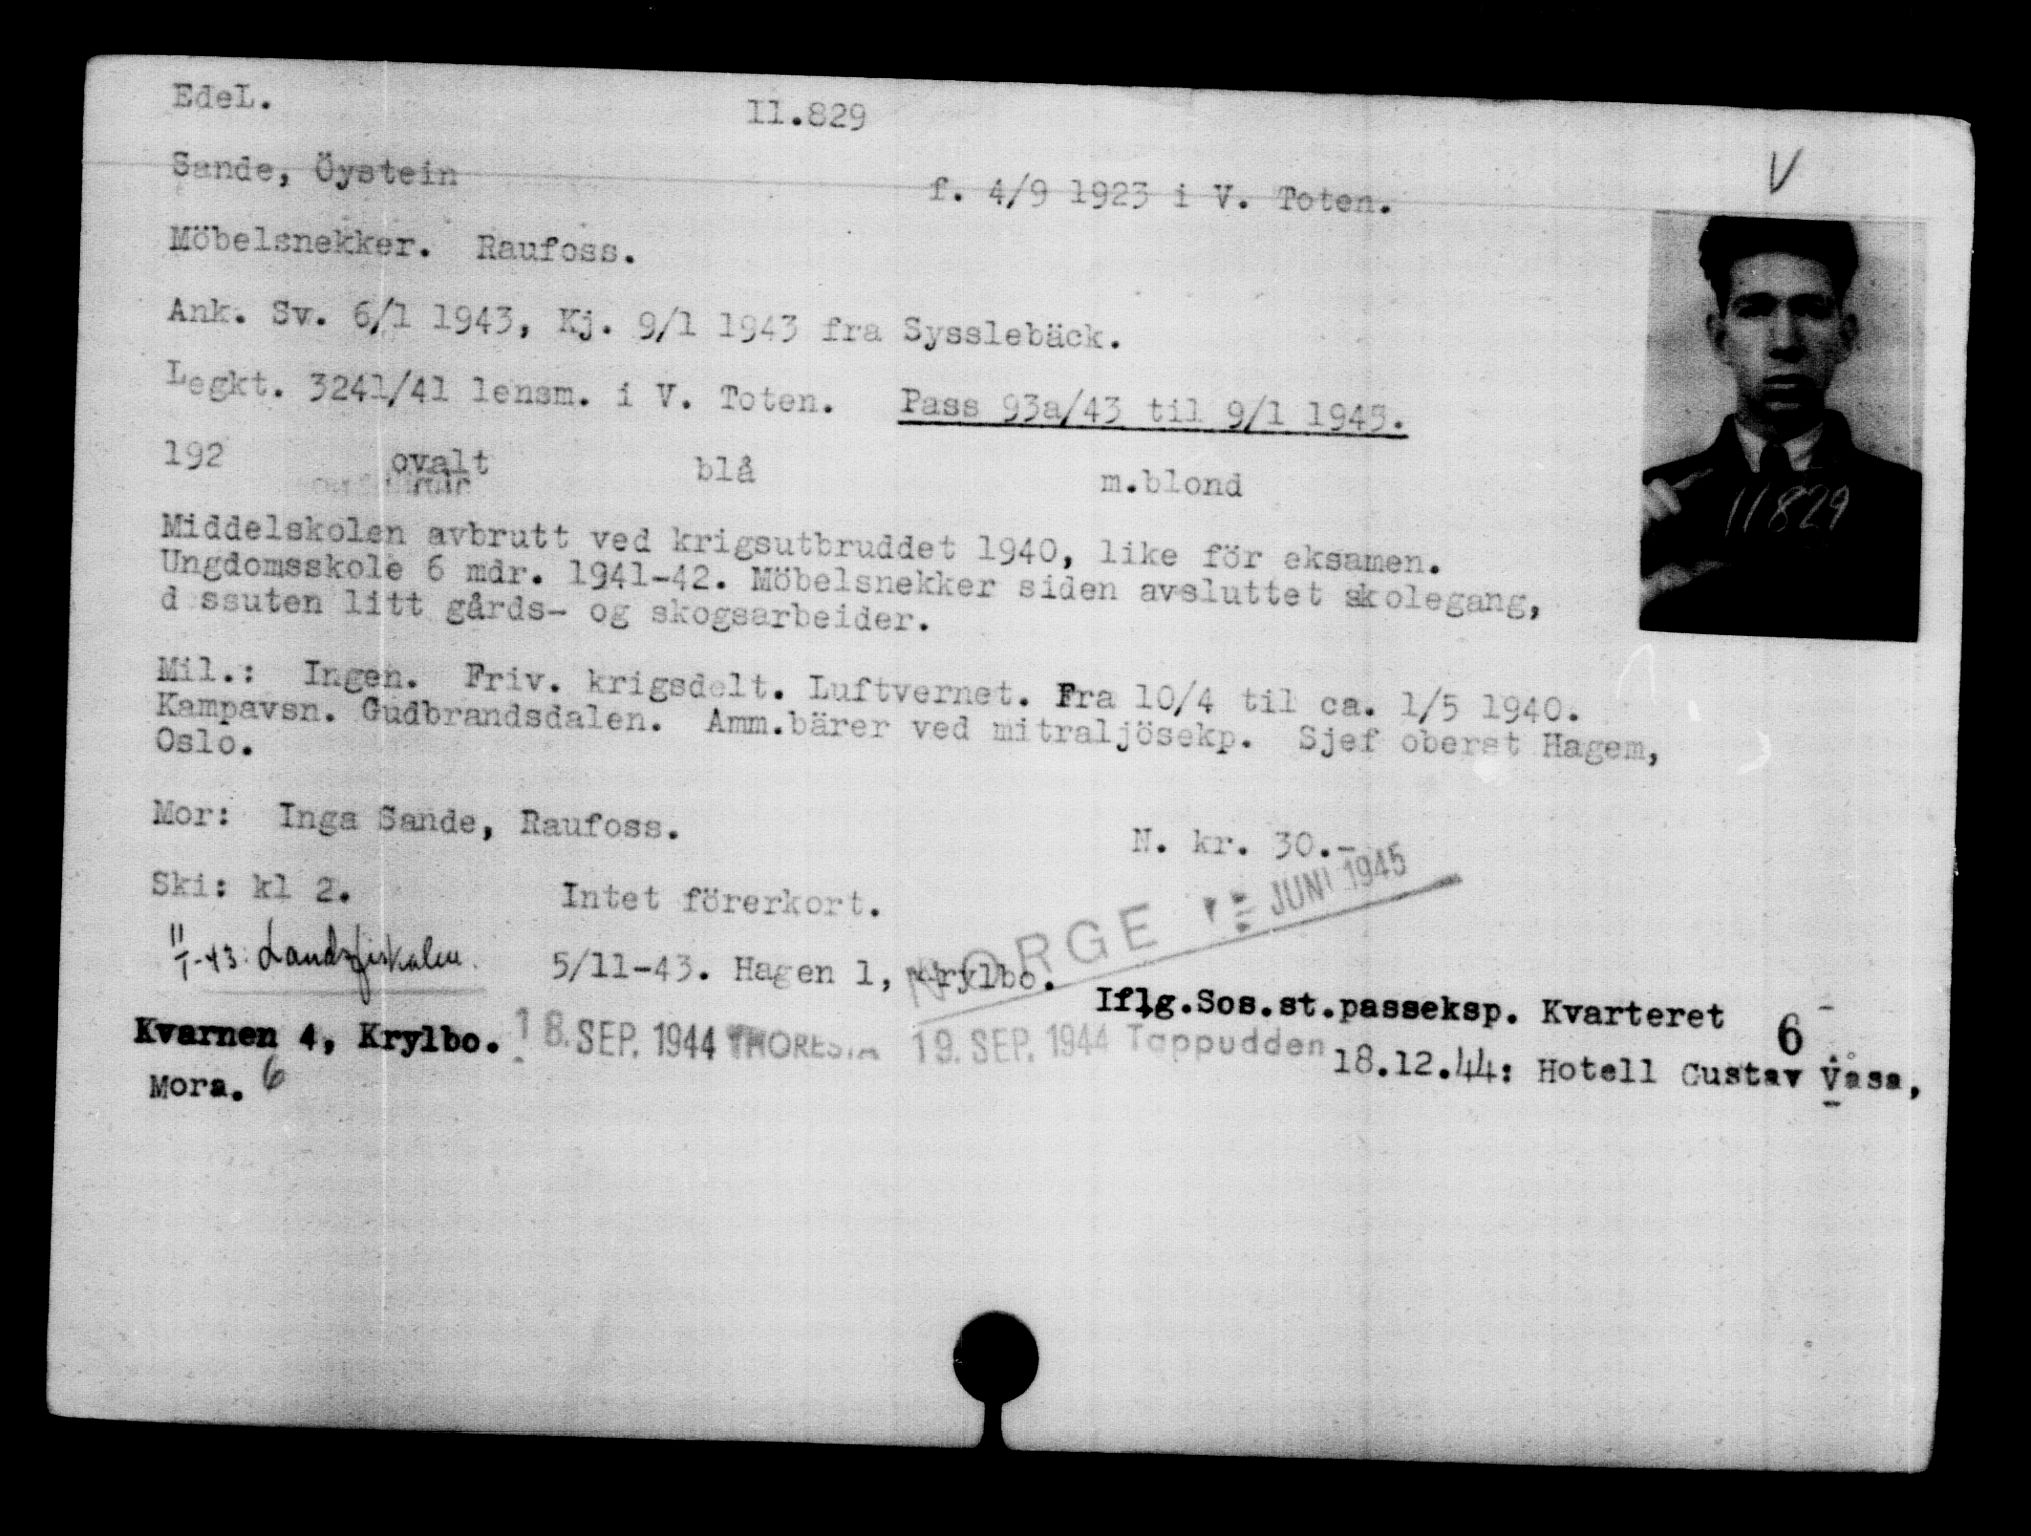 EdeL. 11.829
V
Sande, Öystein f. 4/9 1923 i V. Toten.
Möbelsnekker. Raufoss.
Ank. Sv. 6/1 1943, Kj. 9/1 1943 fra Sysslebäck.
Legkt. 3241/41 lensm. i V. Toten. Pass 93a/43 til 9/1 1945.
192 ovalt blå m.blond
11829
Middelskolen avbrutt ved krigsutbruddet 1940, like för eksamen.
Ungdomsskole 6 mdr. 1941-42. Möbelsnekker siden avsluttet skolegang,
d ssuten litt gårds- og skogsarbeider.
Mil.: Ingen. Friv. krigsdelt. Luftvernet. Fra 10/4 til ca. 1/5 1940.
Kampavsn. Gudbrandsdalen. Amm.bärer ved mitraljösekp. Sjef oberst Hagem,
Oslo.
Mor: Inga Sande, Raufoss. N. kr. 30.-
Ski: kl 2. Intet förerkort.
NORGE JUNI 1945
11/1-43: Landsfiskalen. 5/11-43. Hagen 1, Krylbo.
Iflg.Sos.st.passeksp. Kvarteret
Kvarnen 4, Krylbo. 18. SEP. 1944 THORESTA 19. SEP. 1944 Tappudden 6
18.12.44: Hotell Gustav Vasa,
Mora. 6